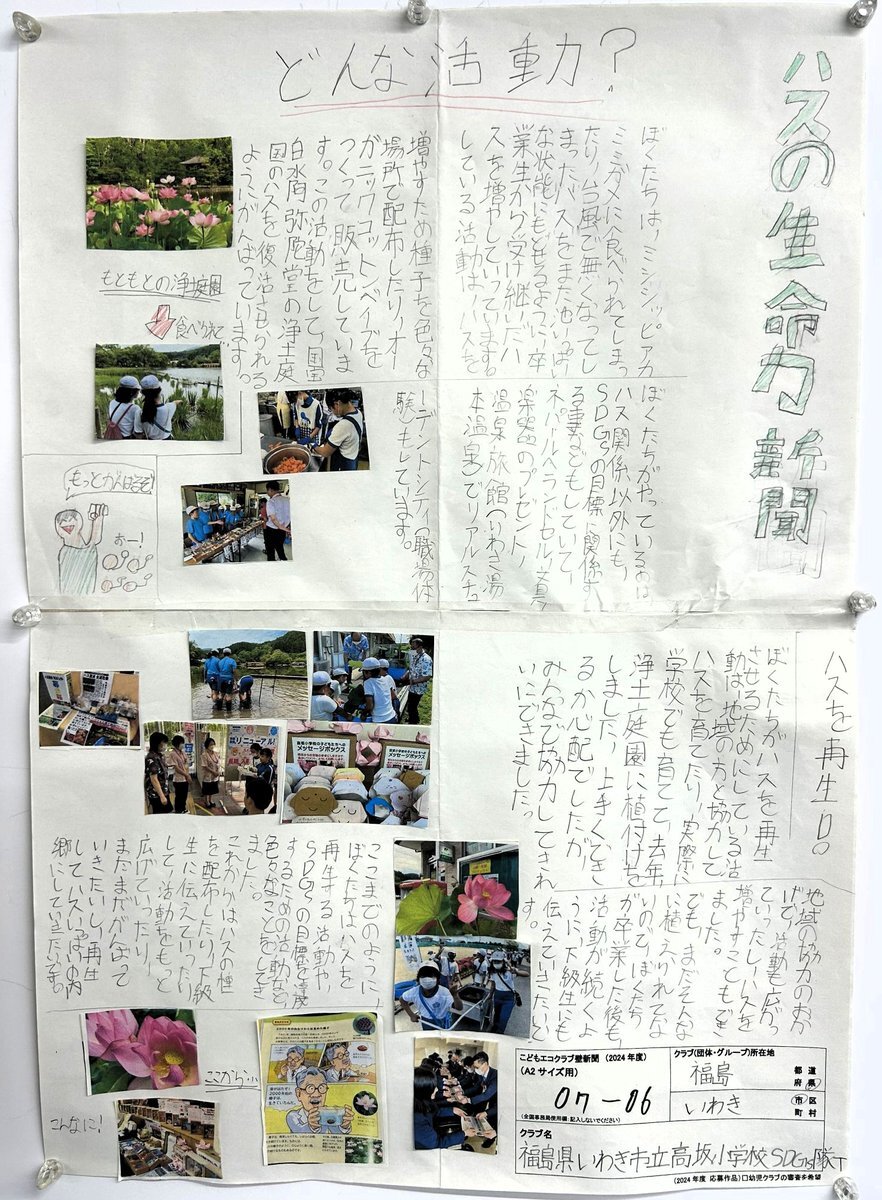 ハスの生命力新聞
どんな活動?
ぼくたちは、ミシシッピアカ
ミミガメに食べられてしまっ
たり、台風で無くなってし
まったハスをまた池いっぱい
な状態にもどせるように、卒
業生から受け継いだハ
スを増やしていっています。
している活動は、ハスを
増やすため種子を色々な
場所で配布したり、オー
ガニックコットンベイブを
つくって販売していま
す。この活動をして、国宝
白水阿弥陀堂の浄土庭
園のハスを復活させられる
ようにがんばっています。
もともとの浄土庭園
食べられて
もっとがんばるぞ
おー!
ぼくたちがやっているのは
ハス関係以外にも、
SDGsの目標に関係す
る事などもしていて、
ネパールへランドセル、文具、
楽器のプレゼント、
温泉旅館(いわき湯
本温泉)でリアルスチュ
ーデントシティの職場体
験もしています。
ハスを再生!?
ぼくたちがハスを再生
させるためにしている活
動は、地域の方と協力して
ハスを育てたり、実際に
学校でも育てて、去年、
浄土庭園に植付けを
しました!上手くでき
るか心配でしたが、
みんなで協力してきれ
いにできました。
メッセージボックス
メッセージボックス
地域の協力のおか
げで、活動も広がっ
ていったし、ハスを
増やすこともでき
ました。
でも、まだそんな
に植えられてな
いので、ぼくたち
が卒業した後も、
活動が続くよ
うに、下級生にも
伝えていきたいで
す。
ここまでのように
ぼくたちはハスを
再生する活動や、
SDGsの目標を達成
するための活動など
色々なことをしてき
ました。
これからはハスの種
を配布したり、下級
生に伝えていったり
して、活動をもっと
広げていったり、
まだまだがんばって
いきたいし、再生
して、ハスいっぱいの内
郷にしていきたいです。
ここから…
こんなに!
こどもエコクラブ壁新聞 (2024年度)
(A2サイズ用)
07-06
(全国事務局使用欄:記入しないでください)
クラブ(団体・グループ)所在地
福島
都道
府県
いわき
市区
町村
クラブ名
福島県いわき市立高坂小学校SDGs隊T
(2024年度 応募作品)□幼児クラブの審査を希望